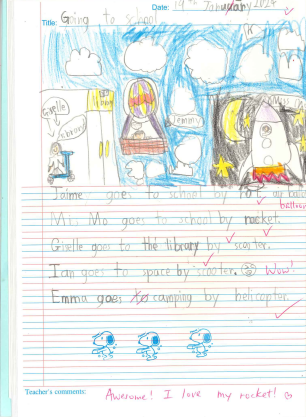 Date: 19th January 2024
Title: Going to school
Giselle
library
library
Jemmy
Miss
Jaime goes to school by hot air balloon
balloon
Miss Mo goes to school by rocket.
Giselle goes to the library by scooter.
Ian goes to space by scooter. Wow!
Emma goes to camping by helicopter.
Teacher's comments: Awesome! I love my rocket!